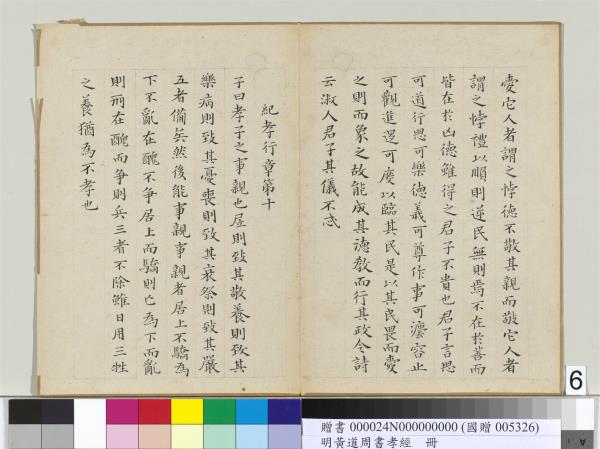 愛它人者謂之悖德不敬其親而敬它人者
謂之悖禮以順則逆民無則焉不在於善而
皆在於凶德雖得之君子不貴也君子言思
可道行思可樂德義可尊作事可灋容止
可觀進退可度以臨其民是以其民畏而愛
之則而象之故能成其德教而行其政令詩
云淑人君子其儀不忒
紀孝行章第十
子曰孝子之事親也居則致其敬養則致其
樂病則致其憂喪則致其哀祭則致其嚴
五者備矣然後能事親事親者居上不驕為
下不亂在醜不爭居上而驕則亡為下而亂
則刑在醜而爭則兵三者不除雖日用三牲
之養猶為不孝也
6
贈書 000024N000000000 (國贈 005326)
明黃道周書孝經 冊